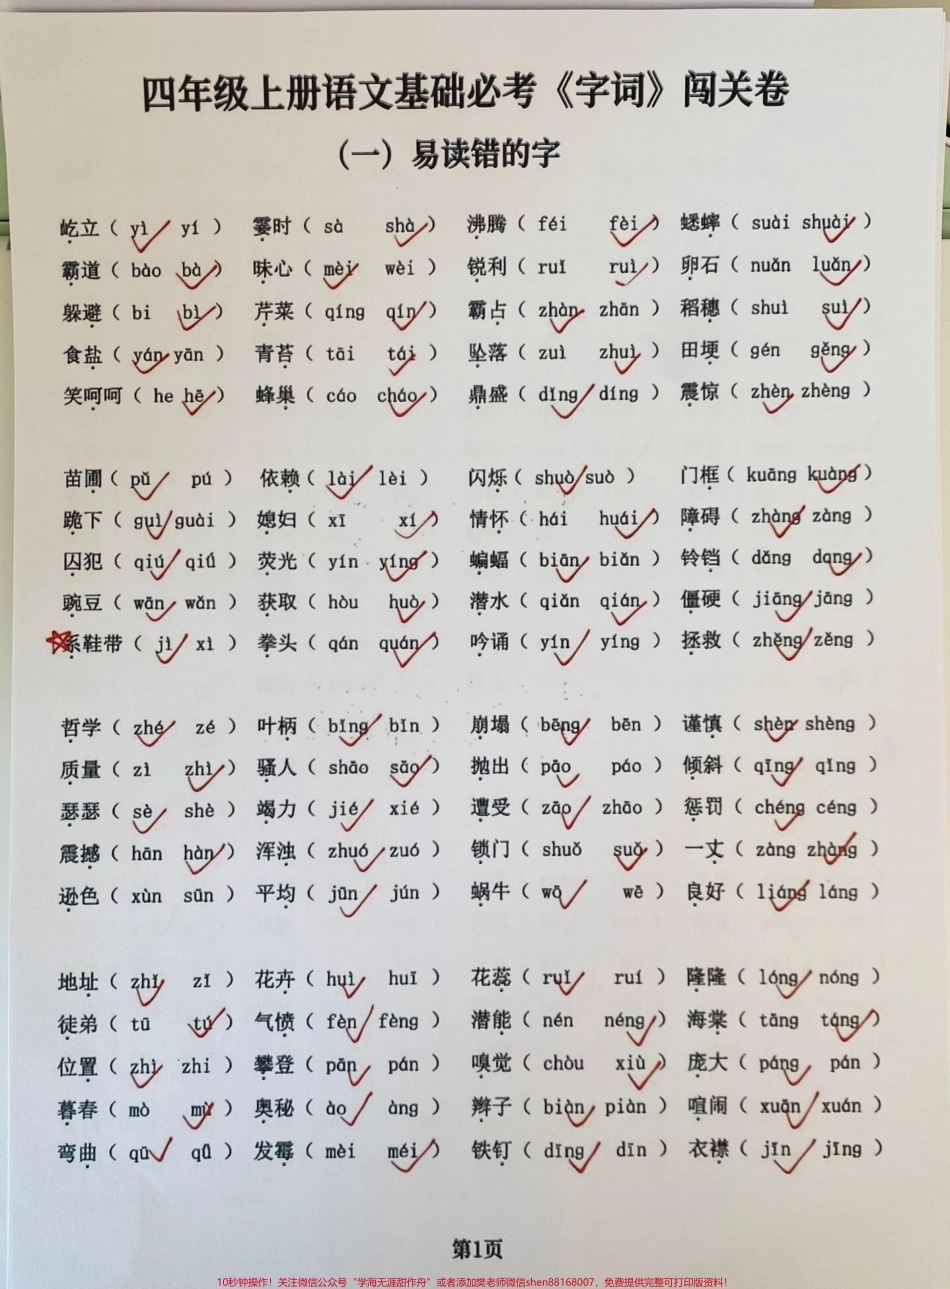 四年级上册语文基础必考《字词》闯关卷
（一）易读错的字
屹立（ yì yí ） 霎时（ sà shà ） 沸腾（ féi fèi ） 蟋蟀（ suài shuài ）
霸道（ bào bà ） 昧心（ mèi wèi ） 锐利（ ruǐ ruì ） 卵石（ nuǎn luǎn ）
躲避（ bi bì ） 芹菜（ qíng qín ） 霸占（ zhàn zhān ） 稻穗（ shuì suì ）
食盐（ yán yān ） 青苔（ tāi tái ） 坠落（ zuì zhuì ） 田埂（ gén gěng ）
笑呵呵（ he hē ） 蜂巢（ cáo cháo ） 鼎盛（ dǐng díng ） 震惊（ zhèn zhèng ）
苗圃（ pǔ pú ） 依赖（ lài lèi ） 闪烁（ shuò suò ） 门框（ kuāng kuàng ）
跪下（ guì guài ） 媳妇（ xī xí ） 情怀（ hái huái ） 障碍（ zhàng zàng ）
囚犯（ qiú qiǔ ） 荧光（ yín yíng ） 蝙蝠（ biān biǎn ） 铃铛（ dǎng dang ）
豌豆（ wān wǎn ） 获取（ hòu huò ） 潜水（ qiǎn qián ） 僵硬（ jiāng jāng ）
系鞋带（ jì xì ） 拳头（ qán quán ） 吟诵（ yín yíng ） 拯救（ zhěng zěng ）
哲学（ zhé zé ） 叶柄（ bǐng bǐn ） 崩塌（ bēng bēn ） 谨慎（ shèn shèng ）
质量（ zì zhì ） 骚人（ shāo sāo ） 抛出（ pāo páo ） 倾斜（ qīng qǐng ）
瑟瑟（ sè shè ） 竭力（ jié xié ） 遭受（ zāo zhāo ） 惩罚（ chéng céng ）
震撼（ hān hàn ） 浑浊（ zhuó zuó ） 锁门（ shuǒ suǒ ） 一丈（ zàng zhàng ）
逊色（ xùn sūn ） 平均（ jūn jún ） 蜗牛（ wō wē ） 良好（ liáng láng ）
地址（ zhǐ zǐ ） 花卉（ huì huī ） 花蕊（ ruǐ ruí ） 隆隆（ lóng nóng ）
徒弟（ tū tú ） 气愤（ fèn fèng ） 潜能（ nén néng ） 海棠（ tāng táng ）
位置（ zhì zhi ） 攀登（ pān pán ） 嗅觉（ chòu xiù ） 庞大（ páng pán ）
暮春（ mò mù ） 奥秘（ ào àng ） 辫子（ biàn piàn ） 喧闹（ xuān xuán ）
弯曲（ qū qǔ ） 发霉（ mèi méi ） 铁钉（ dīng dīn ） 衣襟（ jīn jīng ）
第1页
10秒钟操作！关注微信公众号“学海无涯甜作舟”或者添加樊老师微信shen88168007，免费提供完整可打印版资料！